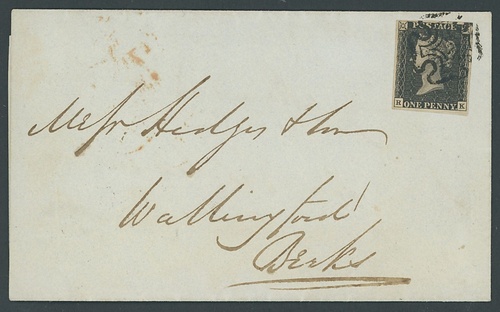 POSTAGE
R K
ONE PENNY
Messrs Hedges & Son
Wallingford
Berks